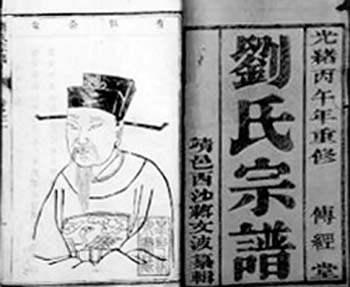 光緒丙午年重修　傳經堂
劉氏宗譜
靖邑西沙蔣文波纂輯